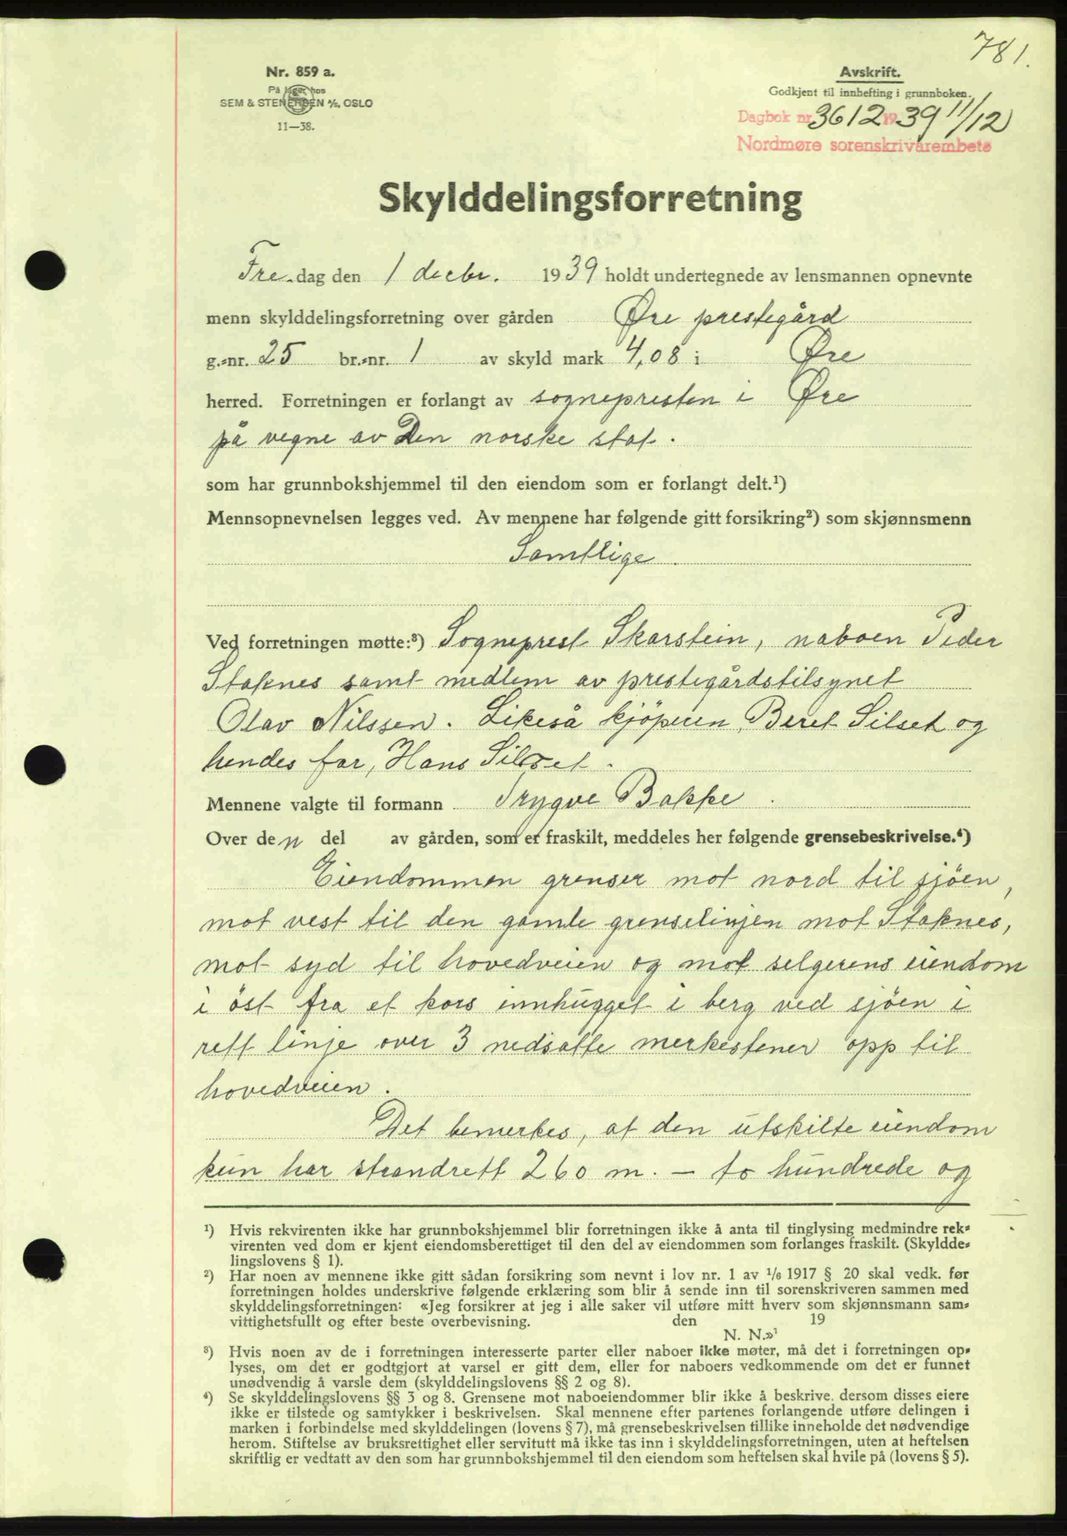 781.
Nr. 859 a.
På lager hos
SEM & STENERSEN A/S, OSLO
11—38.
Avskrift.
Godkjent til innhefting i grunnboken.
Dagbok nr. 3612 1939 11/12
Nordmøre sorenskriverembete
Skylddelingsforretning
Fre.dag den 1 decbr. 1939 holdt undertegnede av lensmannen opnevnte
menn skylddelingsforretning over gården Øre prestegård
g.-nr. 25 br.-nr. 1 av skyld mark 4,08 i Øre
herred. Forretningen er forlangt av sognepresten i Øre
på vegne av Den norske stat.
som har grunnbokshjemmel til den eiendom som er forlangt delt.¹)
Mennsopnevnelsen legges ved. Av mennene har følgende gitt forsikring²) som skjønnsmenn
Samtlige.
Ved forretningen møtte:³) Sogneprest Skarstein, naboen Peder
Staknes samt medlem av prestegårdstilsynet
Olav Nilssen. Likeså kjöperen, Beret Silset og
hendes far, Hans Silset.
Mennene valgte til formann Trygve Bakke.
Over den del av gården, som er fraskilt, meddeles her følgende grensebeskrivelse.⁴)
Eiendommen grenser mot nord til sjöen,
mot vest til den gamle grenselinjen mot Staknes,
mot syd til hovedveien og mot selgerens eiendom
i öst fra et kors innhugget i berg ved sjöen i
rett linje over 3 nedsatte merkestener opp til
hovedveien.
Det bemerkes, at den utskilte eiendom
kun har strandrett 260 m. — to hundrede og
¹) Hvis rekvirenten ikke har grunnbokshjemmel blir forretningen ikke å anta til tinglysing medmindre rek-
virenten ved dom er kjent eiendomsberettiget til den del av eiendommen som forlanges fraskilt. (Skyldde-
lingslovens § 1).
²) Har noen av mennene ikke gitt sådan forsikring som nevnt i lov nr. 1 av 1/6 1917 § 20 skal vedk. før
forretningen holdes underskrive følgende erklæring som blir å sende inn til sorenskriveren sammen med
skylddelingsforretningen: «Jeg forsikrer at jeg i alle saker vil utføre mitt hverv som skjønnsmann sam-
vittighetsfullt og efter beste overbevisning. den 19
N. N.»
³) Hvis noen av de i forretningen interesserte parter eller naboer ikke møter, må det i forretningen op-
lyses, om det er godtgjort at varsel er gitt dem, eller for naboers vedkommende om det er funnet
unødvendig å varsle dem (skylddelingslovens §§ 2 og 8).
⁴) Se skylddelingslovens §§ 3 og 8. Grensene mot naboeiendommer blir ikke å beskrive, dersom disses eiere
ikke er tilstede og samtykker i beskrivelsen. Skal mennene efter partenes forlangende utføre delingen i
marken i forbindelse med skylddelingen (lovens § 7), må grensebeskrivelsen tillike inneholde det nødvendige
herom. Stiftelse av bruksrettighet eller servitutt må ikke tas inn i skylddelingsforretningen, uten at heftelsen
skriftlig er vedtatt av den som har grunnbokshjemmel til den eiendom som heftelsen skal hvile på (lovens § 5).